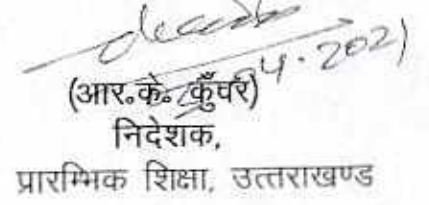 4.2021
(आर.के. कुँवर)
निदेशक,
प्रारम्भिक शिक्षा, उत्तराखण्ड